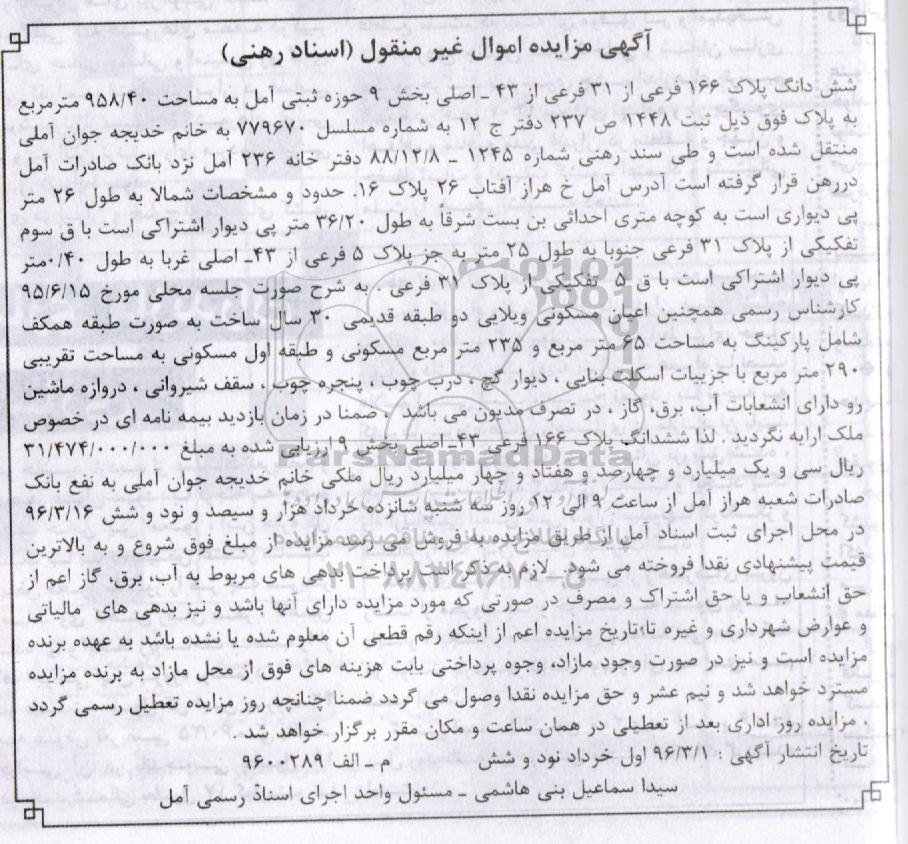 آگهی مزایده اموال غیر منقول (اسناد رهنی)
شش دانگ پلاک ۱۶۶ فرعی از ۳۱ فرعی از ۴۳ ـ اصلی بخش ۹ حوزه ثبتی آمل به مساحت ۹۵۸/۴۰ مترمربع
به پلاک فوق ذیل ثبت ۱۴۴۸ ص ۲۳۷ دفتر ج ۱۲ به شماره مسلسل ۷۷۹۶۷۰ به خانم خدیجه جوان آملی
منتقل شده است و طی سند رهنی شماره ۱۲۴۵ ـ ۸۸/۱۲/۸ دفتر خانه ۲۳۶ آمل نزد بانک صادرات آمل
دررهن قرار گرفته است آدرس آمل خ هراز آفتاب ۲۶ پلاک ۱۶. حدود و مشخصات شمالا به طول ۲۶ متر
پی دیواری است به کوچه متری احداثی بن بست شرقا به طول ۳۶/۲۰ متر پی دیوار اشتراکی است با ق سوم
تفکیکی از پلاک ۳۱ فرعی جنوبا به طول ۲۵ متر به جز پلاک ۵ فرعی از ۴۳ـ اصلی غربا به طول ۰/۴۰متر
پی دیوار اشتراکی است با ق ۵ تفکیکی از پلاک ۳۱ فرعی . به شرح صورت جلسه محلی مورخ ۹۵/۶/۱۵
کارشناس رسمی همچنین اعیان مسکونی ویلایی دو طبقه قدیمی ۳۰ سال ساخت به صورت طبقه همکف
شامل پارکینگ به مساحت ۶۵ متر مربع و ۲۳۵ متر مربع مسکونی و طبقه اول مسکونی به مساحت تقریبی
۲۹۰ متر مربع با جزییات اسکلت بنایی ، دیوار گچ ، درب چوب ، پنجره چوب ، سقف شیروانی ، دروازه ماشین
رو دارای انشعابات آب، برق، گاز ، در تصرف مدیون می باشد . ضمنا در زمان بازدید بیمه نامه ای در خصوص
ملک ارایه نگردید . لذا ششدانگ پلاک ۱۶۶ فرعی ۴۳ـ اصلی بخش ۹ ارزیابی شده به مبلغ ۳۱/۴۷۴/۰۰۰/۰۰۰
ریال سی و یک میلیارد و چهارصد و هفتاد و چهار میلیارد ریال ملکی خانم خدیجه جوان آملی به نفع بانک
صادرات شعبه هراز آمل از ساعت ۹ الی ۱۲ روز سه شنبه شانزده خرداد هزار و سیصد و نود و شش ۹۶/۳/۱۶
در محل اجرای ثبت اسناد آمل از طریق مزایده به فروش می رسد مزایده از مبلغ فوق شروع و به بالاترین
قیمت پیشنهادی نقدا فروخته می شود . لازم به ذکر است پرداخت بدهی های مربوط به آب، برق، گاز اعم از
حق انشعاب و یا حق اشتراک و مصرف در صورتی که مورد مزایده دارای آنها باشد و نیز بدهی های مالیاتی
و عوارض شهرداری و غیره تا تاریخ مزایده اعم از اینکه رقم قطعی آن معلوم شده یا نشده باشد به عهده برنده
مزایده است و نیز در صورت وجود مازاد، وجوه پرداختی بابت هزینه های فوق از محل مازاد به برنده مزایده
مسترد خواهد شد و نیم عشر و حق مزایده نقدا وصول می گردد ضمنا چنانچه روز مزایده تعطیل رسمی گردد
، مزایده روز اداری بعد از تعطیلی در همان ساعت و مکان مقرر برگزار خواهد شد.
تاریخ انتشار آگهی : ۹۶/۳/۱ اول خرداد نود و شش م ـ الف ۹۶۰۰۲۸۹
سیدا سماعیل بنی هاشمی ـ مسئول واحد اجرای اسناد رسمی آمل
ParsNamadData